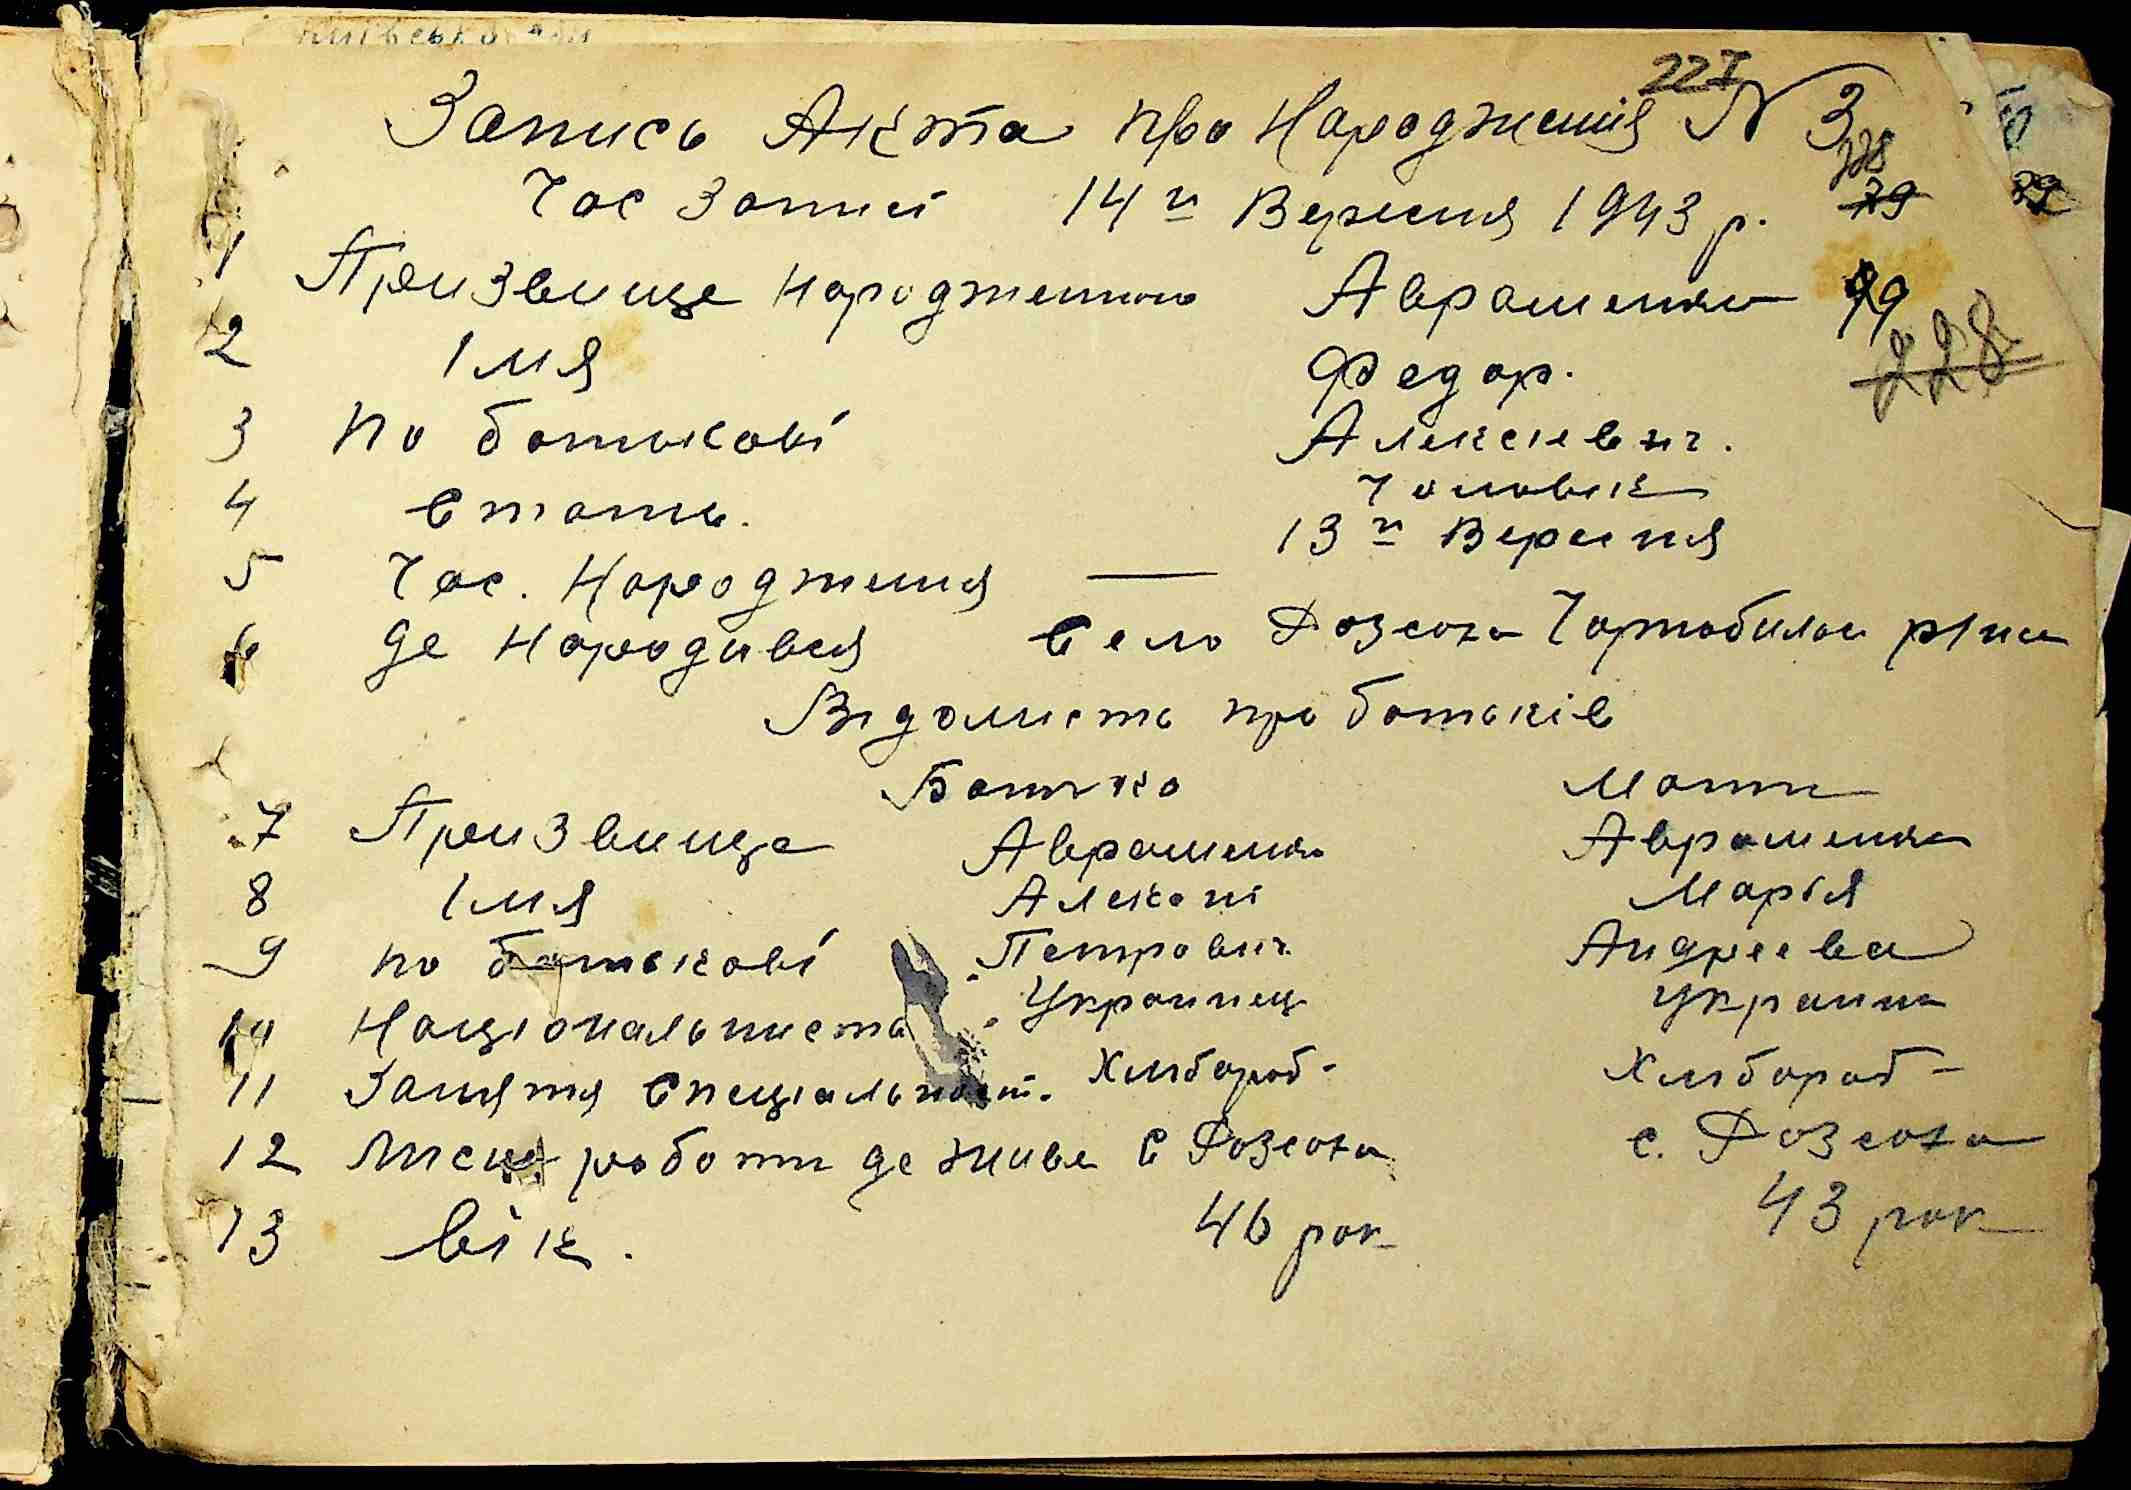 221
Запись Акта про Народження N 3
Час Записі 14го Вересня 1943 р. 79 228
1 Призвище народженого Авраменко 99
228
2 Імя Федор.
3 По батькові Алексіевич.
4 Стать. Чоловік
5 Час. Народження — 13го Вересня
6 Де Народився Село Розсоха Чорнобильск р/на
Відомисть про батьків
Батько Мати
7 Призвище Авраменко Авраменко
8 Імя Алексій Марія
9 по батькові Петрович Андреева
10 Національнисть Украинец Украинка
11 Заняття Специальност. Хлибороб- Хлибороб-
12 Мисце работи де живе С Розсоха с. Розсоха
13 Вік. 46 рок 43 рок